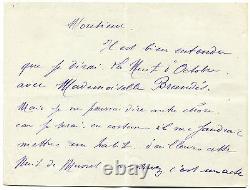 Monsieur
Il est bien entendu
que je dirai la Nuit d'Octobre
avec Mademoiselle Brandès
Mais je ne pourrai dire autre chose
car pour en costume il me faudrait
mettre un habit d'ailleurs cette
Nuit de Musset c'est un acte
picclick.com